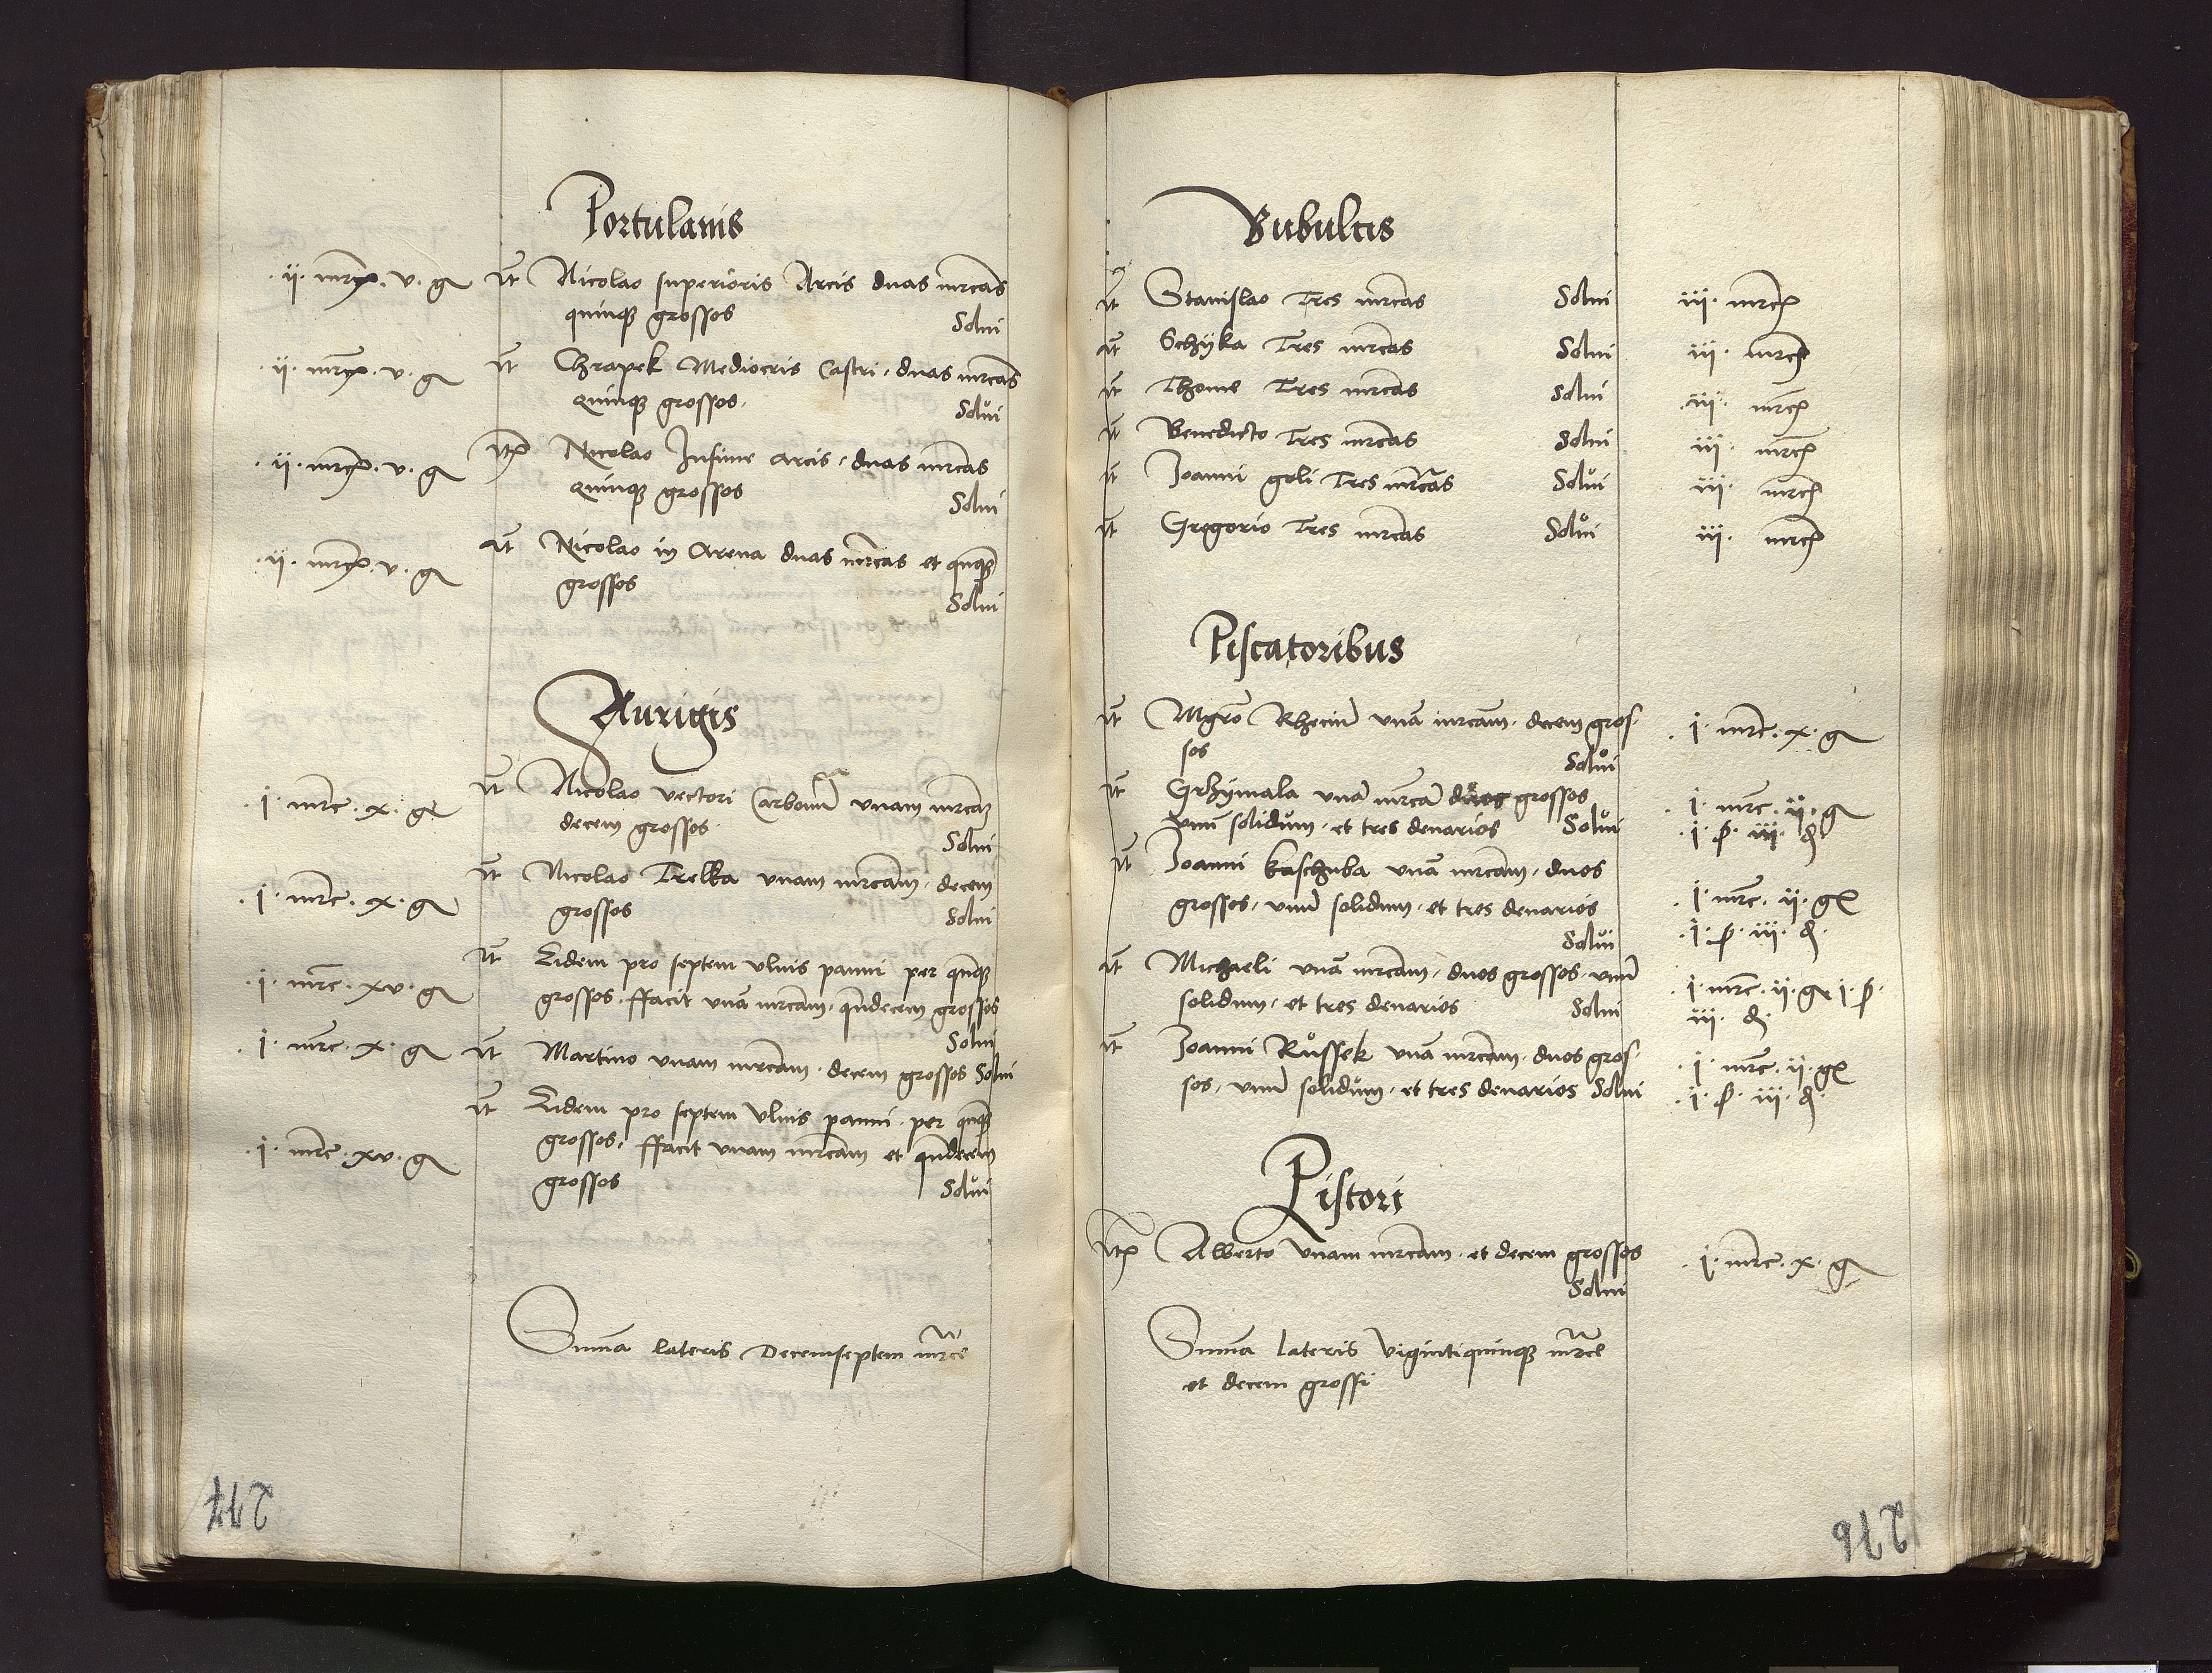 Portulanis
.ij. mrcp. v. g Itt Nicolao superioris Arcis duas mrcas
quinqz grossos
Solui
.ij. mrcp. v. g Itt Chrapek Mediocris Castri, duas mrcas
Quinqz grossos.
Solui
.ij. mrcp. v. g Itp Nicolao Infime arcis, duas mrcas
Quinqz grossos
Solui
.ij. mrcp. v. g Itt Nicolao in Arena duas mrcas et qnqz
grossos
Solui
Aurigis
.j. mrc. x. g Itt Nicolao vectori Carbonu unam mrcam
decem grossos.
Solui
.j. mrc. x. g Itt Nicolao Trelka unam mrcam, decem
grossos Solui
.j. mrc. xv. g Itt Eidem pro septem ulnis panni per qnqz
grossos. ffacit una mrcam, qndecem grossos
Solui
.j. mrc. x. g Itt Martino unam mrcam. decem grossos Solui
Itt Eidem pro septem ulnis panni. per qnqz
.j. mrc. xv. g grossos, ffacit unam mrcam et qndecem
grossos Solui
Suma lateris Decemseptem mrce
217
Bubulcis
Itt Stanislao Tres mrcas Solui iij. mrcp
Itt Schyka Tres mrcas Solui iij. mrcp
Itt Thome Tres mrcas Solui iij. mrcp
Itt Benedicto Tres mrcas Solui iij. mrcp
Itt Joanni goli Tres mrcas Solui iij. mrcp
Itt Gregorio Tres mrcas Solui iij. mrcp
Piscatoribus
Itt Mgro Rheciu una mrcam. decem gros- .j. mrc. x. g
sos Solui
Itt Grzymala una mrca duos grossos .j. mrc. ij. g
unu solidum. et tres denarios Solui .j. ß. iij. d
Itt Joanni kaschuba una mrcam, duos .j. mrc. ij. g
grossos, unu solidum. et tres denarios .j. ß. iij. d.
Solui
Itt Michaeli una mrcam, duos grossos. unu .j. mrc. ij. g j. ß.
solidum, et tres denarios Solui iij. d.
Itt Joanni Russek una mrcam. duos gros- .j. mrc. ij. g
sos, unu solidum. et tres denarios Solui .j. ß. iij. d.
Pistori
Itp Alberto Unam mrcam. et decem grossos .j. mrc. x. g
Solui
Suma lateris Vigintiquinqz mrce
et decem grossi
216